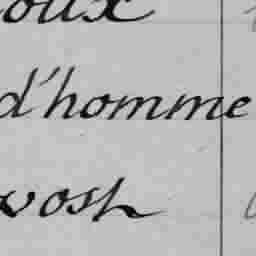 oux
d'homme
vosh